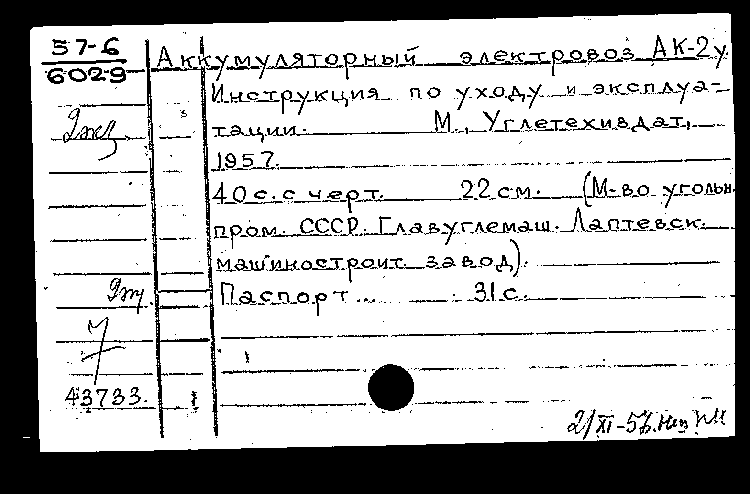 57-6
6029
Аккумуляторный электровоз АК-2у.
Инструкция по уходу и эксплуа-
2жд
тации. М., Углетехиздат,
1957.
40 с. с черт. 22 см. (М-во угольн.
пром. СССР. Главуглемаш. Лаптевск.
машиностроит. завод).
Паспорт... 31 с.
43733.
2/XI-57.